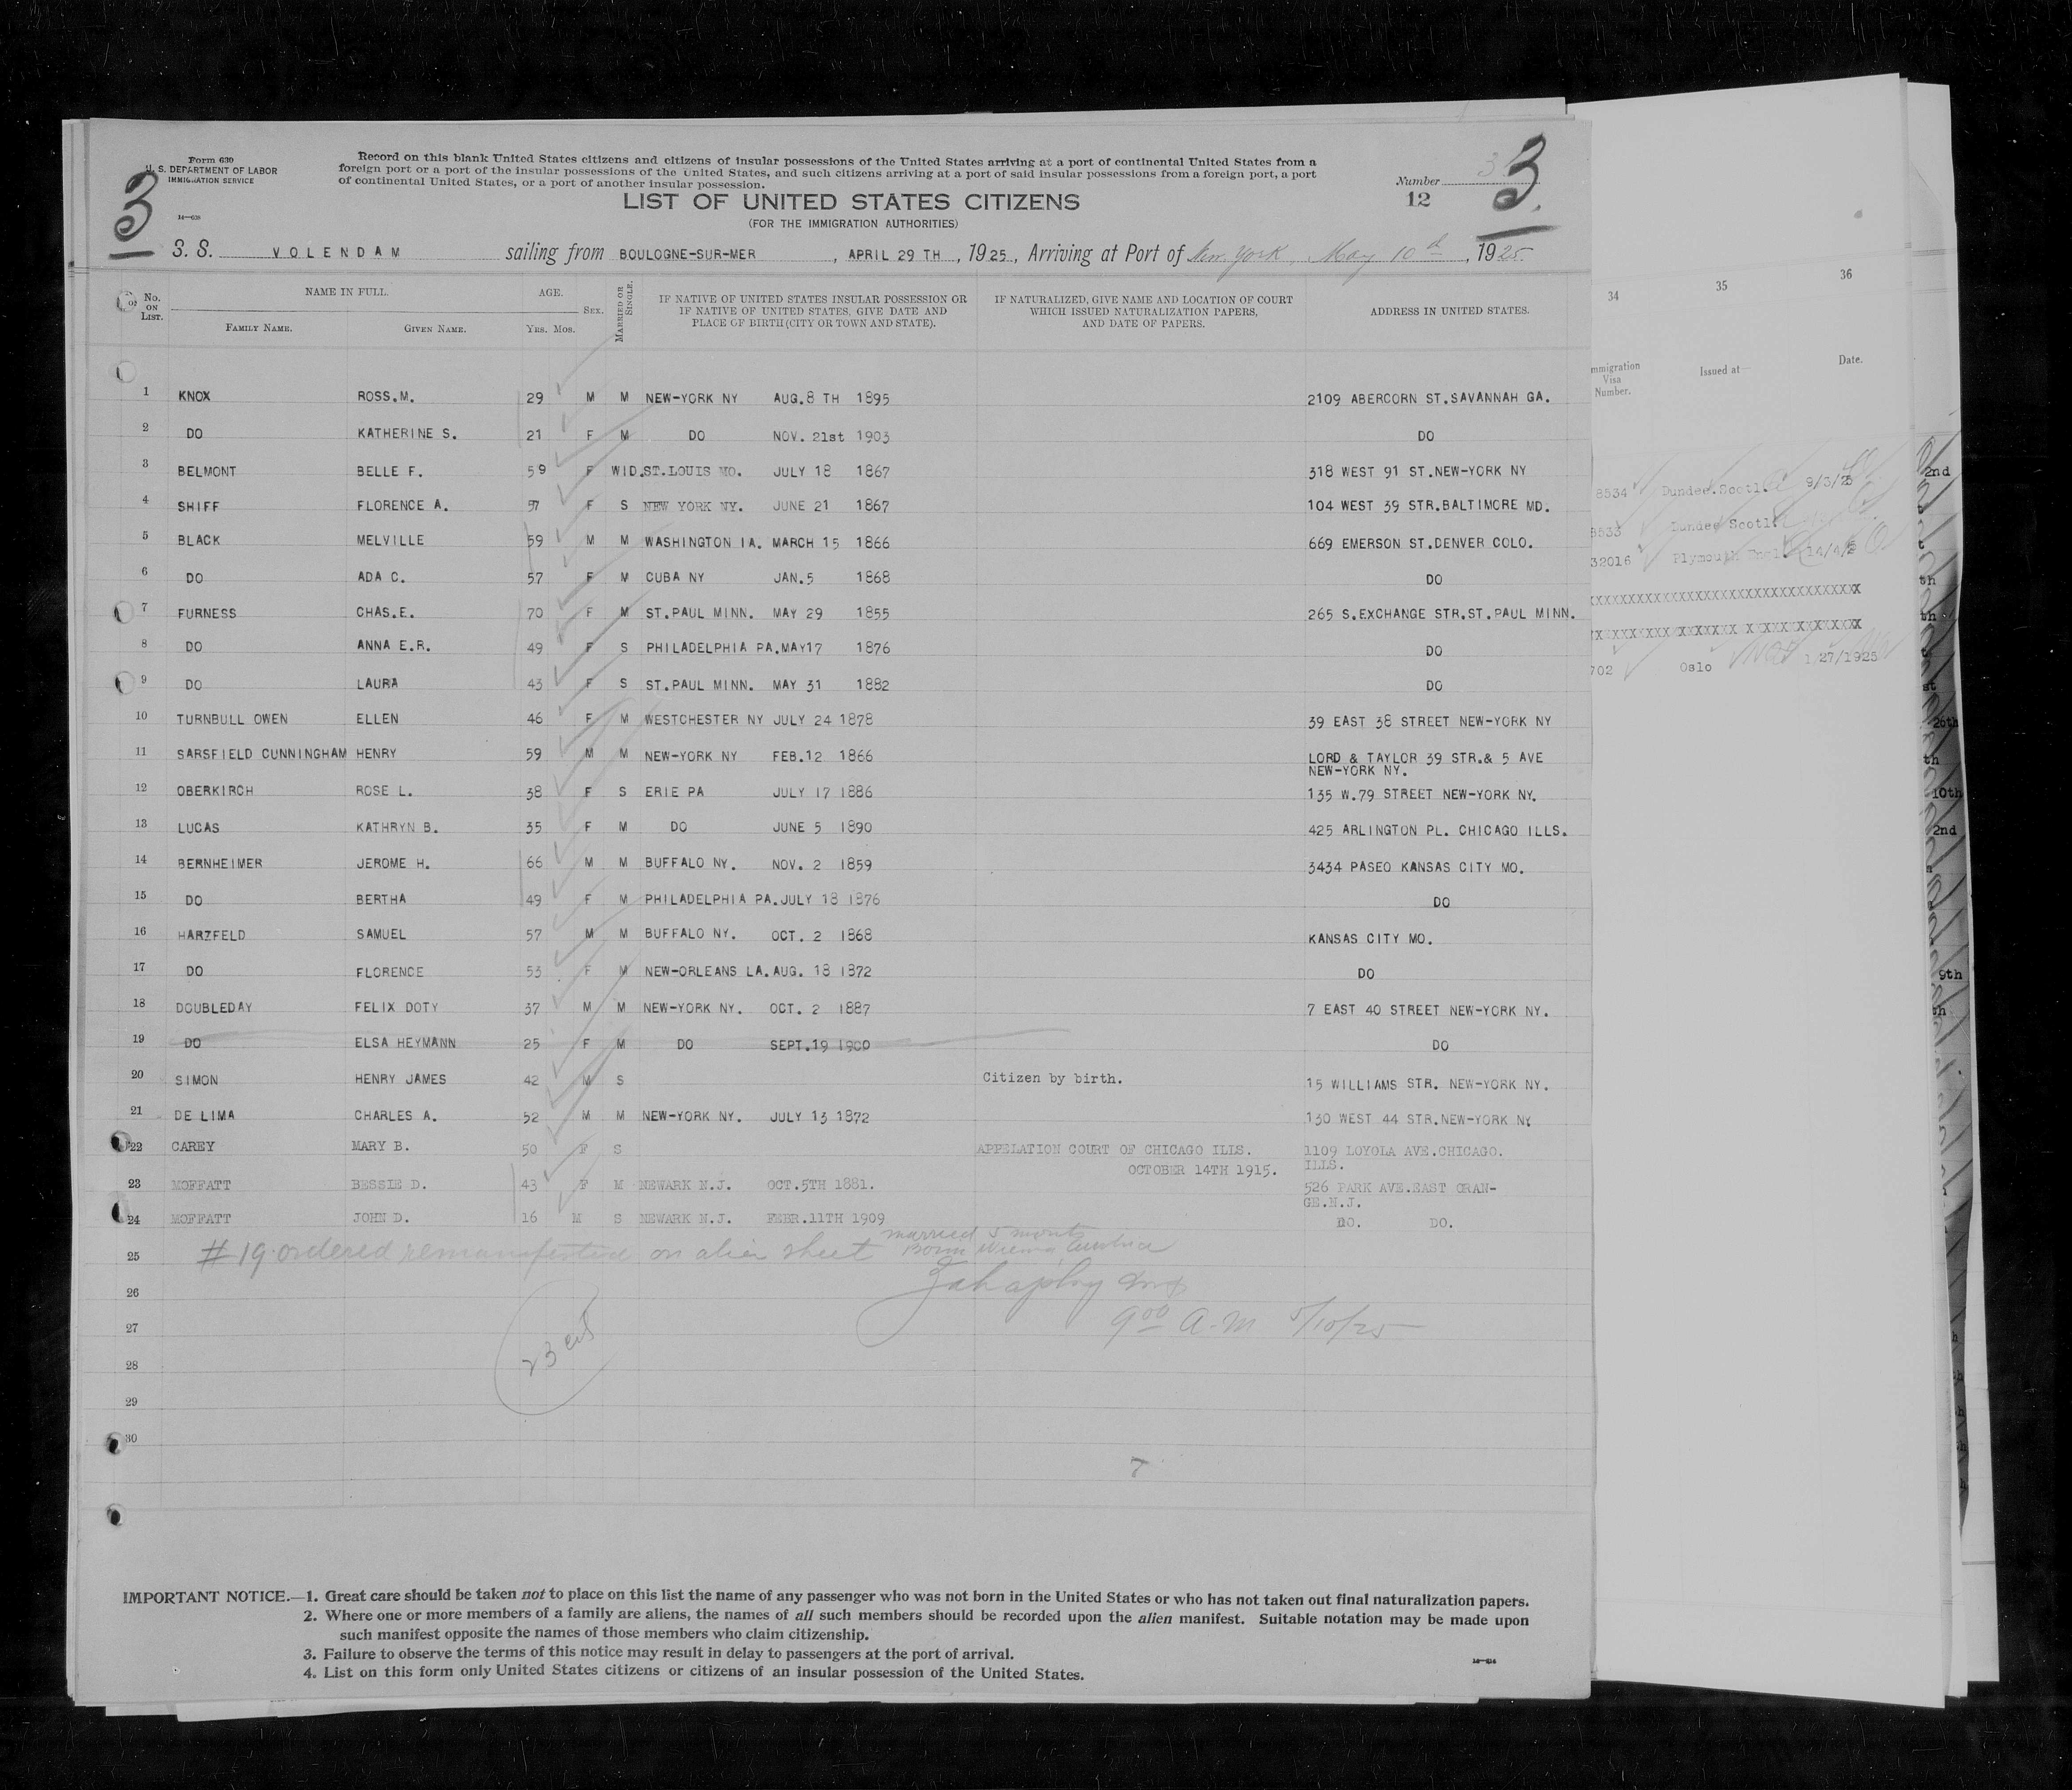 Form 630
U. S. DEPARTMENT OF LABOR
IMMIGRATION SERVICE
14—638
3
Record on this blank United States citizens and citizens of insular possessions of the United States arriving at a port of continental United States from a
foreign port or a port of the insular possessions of the United States, and such citizens arriving at a port of said insular possessions from a foreign port, a port
of continental United States, or a port of another insular possession.
Number 3
12
3.
LIST OF UNITED STATES CITIZENS
(FOR THE IMMIGRATION AUTHORITIES)
S. S. VOLENDAM sailing from BOULOGNE-SUR-MER, APRIL 29 TH, 1925, Arriving at Port of New York, May 10th, 1925
No. ON LIST. NAME IN FULL. FAMILY NAME. GIVEN NAME. AGE. YRS. MOS. SEX. MARRIED OR SINGLE. IF NATIVE OF UNITED STATES INSULAR POSSESSION OR IF NATIVE OF UNITED STATES, GIVE DATE AND PLACE OF BIRTH (CITY OR TOWN AND STATE). IF NATURALIZED, GIVE NAME AND LOCATION OF COURT WHICH ISSUED NATURALIZATION PAPERS, AND DATE OF PAPERS. ADDRESS IN UNITED STATES.
1 KNOX ROSS.M. 29 M M NEW-YORK NY AUG.8 TH 1895 2109 ABERCORN ST.SAVANNAH GA.
2 DO KATHERINE S. 21 F M DO NOV. 21st 1903 DO
3 BELMONT BELLE F. 59 F WID. ST.LOUIS MO. JULY 18 1867 318 WEST 91 ST.NEW-YORK NY
4 SHIFF FLORENCE A. 57 F S NEW YORK NY. JUNE 21 1867 104 WEST 39 STR.BALTIMORE MD.
5 BLACK MELVILLE 59 M M WASHINGTON IA. MARCH 15 1866 669 EMERSON ST.DENVER COLO.
6 DO ADA C. 57 F M CUBA NY JAN.5 1868 DO
7 FURNESS CHAS.E. 70 F M ST.PAUL MINN. MAY 29 1855 265 S.EXCHANGE STR.ST.PAUL MINN.
8 DO ANNA E.R. 49 F S PHILADELPHIA PA.MAY17 1876 DO
9 DO LAURA 43 F S ST.PAUL MINN. MAY 31 1882 DO
10 TURNBULL OWEN ELLEN 46 F M WESTCHESTER NY JULY 24 1878 39 EAST 38 STREET NEW-YORK NY
11 SARSFIELD CUNNINGHAM HENRY 59 M M NEW-YORK NY FEB.12 1866 LORD & TAYLOR 39 STR.& 5 AVE
NEW-YORK NY.
12 OBERKIRCH ROSE L. 38 F S ERIE PA JULY 17 1886 135 W.79 STREET NEW-YORK NY.
13 LUCAS KATHRYN B. 35 F M DO JUNE 5 1890 425 ARLINGTON PL. CHICAGO ILLS.
14 BERNHEIMER JEROME H. 66 M M BUFFALO NY. NOV. 2 1859 3434 PASEO KANSAS CITY MO.
15 DO BERTHA 49 F M PHILADELPHIA PA.JULY 18 1876 DO
16 HARZFELD SAMUEL 57 M M BUFFALO NY. OCT. 2 1868 KANSAS CITY MO.
17 DO FLORENCE 53 F M NEW-ORLEANS LA.AUG. 18 1872 DO
18 DOUBLEDAY FELIX DOTY 37 M M NEW-YORK NY. OCT. 2 1887 7 EAST 40 STREET NEW-YORK NY.
19 DO ELSA HEYMANN 25 F M DO SEPT.19 1900 DO
20 SIMON HENRY JAMES 42 M S Citizen by birth. 15 WILLIAMS STR. NEW-YORK NY.
21 DE LIMA CHARLES A. 52 M M NEW-YORK NY. JULY 13 1872 130 WEST 44 STR.NEW-YORK NY
22 CAREY MARY B. 50 F S APPELATION COURT OF CHICAGO ILLS. 1109 LOYOLA AVE.CHICAGO.
OCTOBER 14TH 1915. ILLS.
23 MOFFATT BESSIE D. 43 F M NEWARK N.J. OCT.5TH 1881. 526 PARK AVE.EAST ORAN-
GE.N.J.
24 MOFFATT JOHN D. 16 M S NEWARK N.J. FEBR.11TH 1909 DO. DO.
married 5 months
25 #19 ordered remanifested on alien sheet Born Vienna Austria
26
27 9 00 A.M 5/10/25
28 23 cit
29
30
7
IMPORTANT NOTICE.—1. Great care should be taken not to place on this list the name of any passenger who was not born in the United States or who has not taken out final naturalization papers.
2. Where one or more members of a family are aliens, the names of all such members should be recorded upon the alien manifest. Suitable notation may be made upon
such manifest opposite the names of those members who claim citizenship.
3. Failure to observe the terms of this notice may result in delay to passengers at the port of arrival.
4. List on this form only United States citizens or citizens of an insular possession of the United States.
34 35 36
Immigration Visa Number. Issued at— Date.
8534 Dundee.Scotl. 9/3/25
8533 Dundee Scotl.
32016 Plymouth Engl. 14/4/2
XXXXXXXXXXXXXXXXXXXXXXXXXXXXXXXX
XXXXXXXXXXXXXXXXXXXXXXXXXXXXXX
702 Oslo 1/27/1925
2nd
th
th
st
26th
th
10th
2nd
9th
th